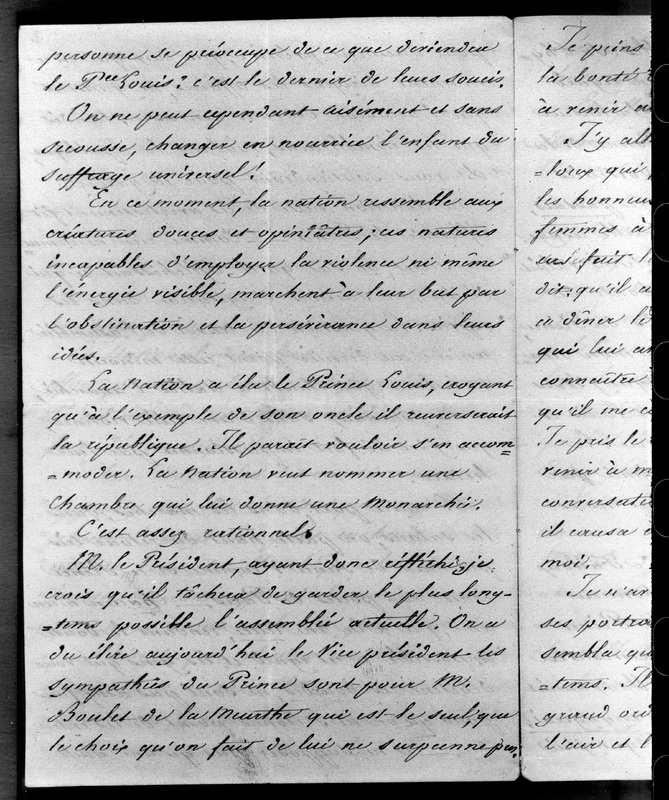 personne se préoccupe de ce que deviendra
le Pce Louis? c'est le dernier de leurs soucis.
On ne peut cependant aisément et sans
secousse, changer en nourrice l'enfant du
suffrage universel!
En ce moment, la nation ressemble aux
créatures douces et opiniâtres; ces natures
incapables d'employer la violence ni même
l'énergie visible, marchent à leur but par
l'obstination et la persévérance dans leurs
idées.
La Nation a élu le Prince Louis, croyant
qu'à l'exemple de son oncle il renverserait
la république. Il parait vouloir s'en accom=
=moder. La Nation veut nommer une
Chambre qui lui donne une Monarchie.
C'est assez rationnel.
M. le Président, ayant donc réfléchi, je
crois qu'il tâchera de garder le plus long-
=tems possible l'assemblée actuelle. On a
du élire aujourd'hui le Vice président les
sympathies du Prince sont pour M.
Boulet de la Meurthe qui est le seul, que
le choix qu'on fait de lui ne surprenne pas.
Je peins
la bonté
à venir
J'y all
=loux qui
les honneu
femmes à
eus fait l
dit: qu'il a
a dîner le
qui lui a
connaître
qu'il me
Je pris le
venir à m
conversati
il causa
moi.
Je n'av
ses portra
sembla qu
=tems. Il
grand ord
l'air et l